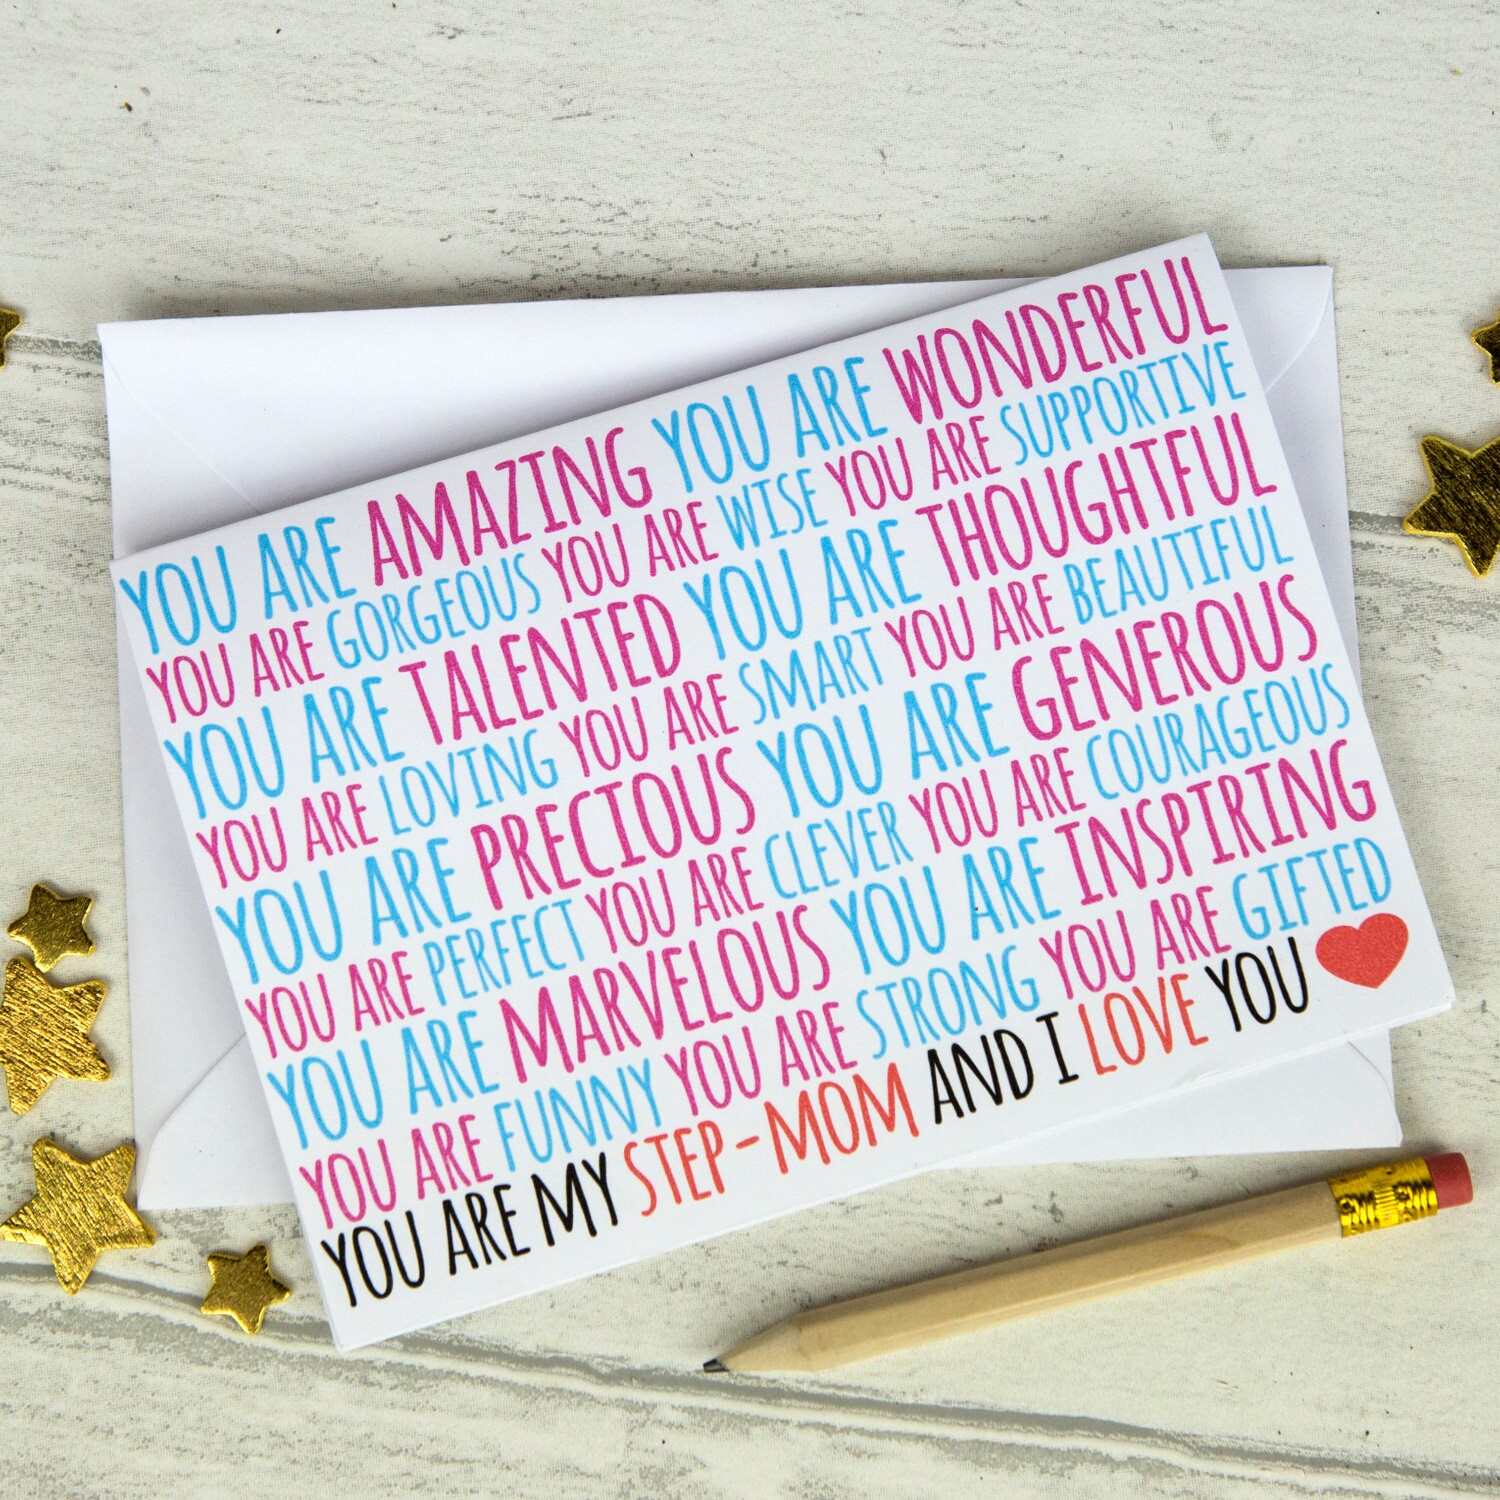 YOU ARE AMAZING YOU ARE WONDERFUL
YOU ARE GORGEOUS YOU ARE WISE YOU ARE SUPPORTIVE
YOU ARE TALENTED YOU ARE THOUGHTFUL
YOU ARE LOVING YOU ARE SMART YOU ARE BEAUTIFUL
YOU ARE PRECIOUS YOU ARE GENEROUS
YOU ARE PERFECT YOU ARE CLEVER YOU ARE COURAGEOUS
YOU ARE MARVELOUS YOU ARE INSPIRING
YOU ARE FUNNY YOU ARE STRONG YOU ARE GIFTED
YOU ARE MY STEP-MOM AND I LOVE YOU